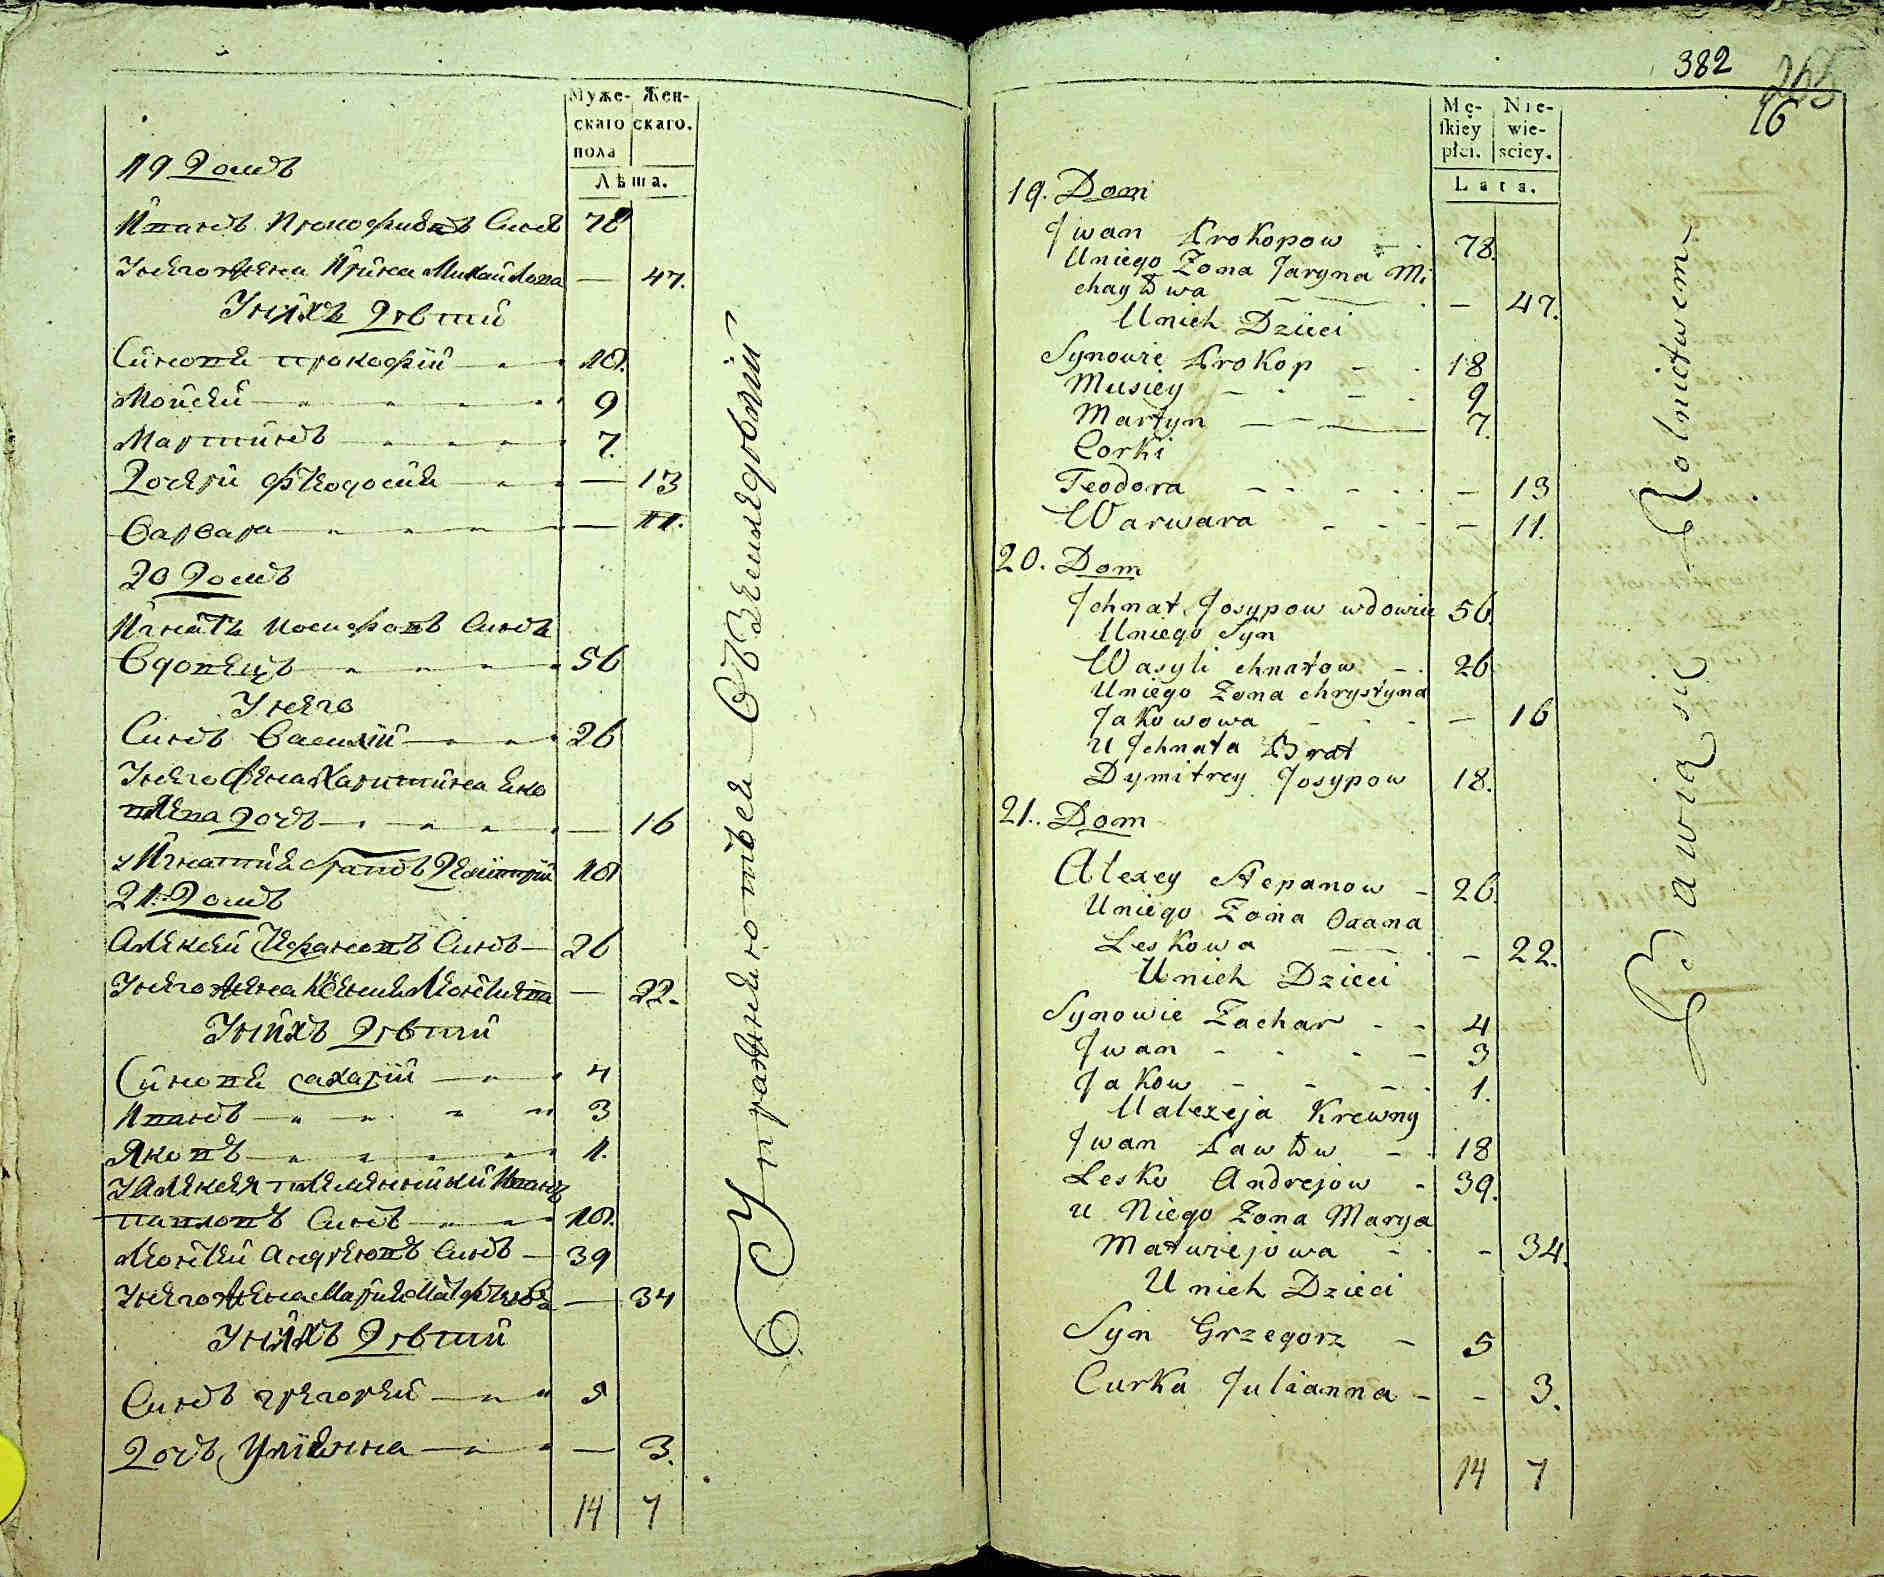 Муже- Жен-
скаго скаго.
пола
Лѣта.
19 Домъ
Иванъ Прокофиевъ Синъ 78
Унего жена Ирина Михайлова — 47.
Унихъ Дѣти
Синови прокофий 18.
Мойсей 9
Мартинъ 7.
Дочери Феодосия — 13
Варвара — 11.
20 Домъ
Игнатъ Иосифовъ Синъ
Вдовецъ 56
Унего
Синъ Василий 26
Унего жена Харитина Яко
влева дочъ — 16
у Игнатия братъ Димитрий 18
21. Домъ
Алексей Стефановъ Синъ 26
Унего жена Ксения — 22.
Унихъ Дѣти
Синови Захарий 4
Иванъ 3
Яковъ 1.
У Алексея племенникъ Иванъ
павловъ Синъ 18.
Андреевъ Синъ 39
Унего жена Мария Матфеева — 34
Унихъ Дѣти
Синъ григорей 5
Дочъ Улияна — 3.
14 7
Упражняются въ Земледелии
382
265
16
Mę- Nie-
skiey wie-
płci. sciey.
Lata.
19. Dom
Jwan Prokopow 78.
Uniego Zona Jaryna Mi
chayłowa — 47.
Unich Dzieci
Synowie Prokop 18
Musiey 9
Martyn 7.
Corki
Teodora — 13
Warwara — 11.
20. Dom
Jchnat Josypow wdowiec 56.
Uniego Syn
Wasyli chnatow 26
Uniego Zona chrystyna
Jakowowa — 16
u Jchnata Brat
Dymitrey Josypow 18.
21. Dom
Alexey Stepanow 26.
Uniego Zona Oxana
Leskowa — 22.
Unich Dzieci
Synowie Zachar 4
Jwan 3
Jakow 1.
Ualexeja Krewny
Jwan Pawłow 18
Lesko Andrejow 39.
u Niego Zona Marya
Matwiejowa — 34.
Unich Dzieci
Syn Grzegorz 5
Curka Julianna — 3.
14 7
Bawią się Rolnictwem